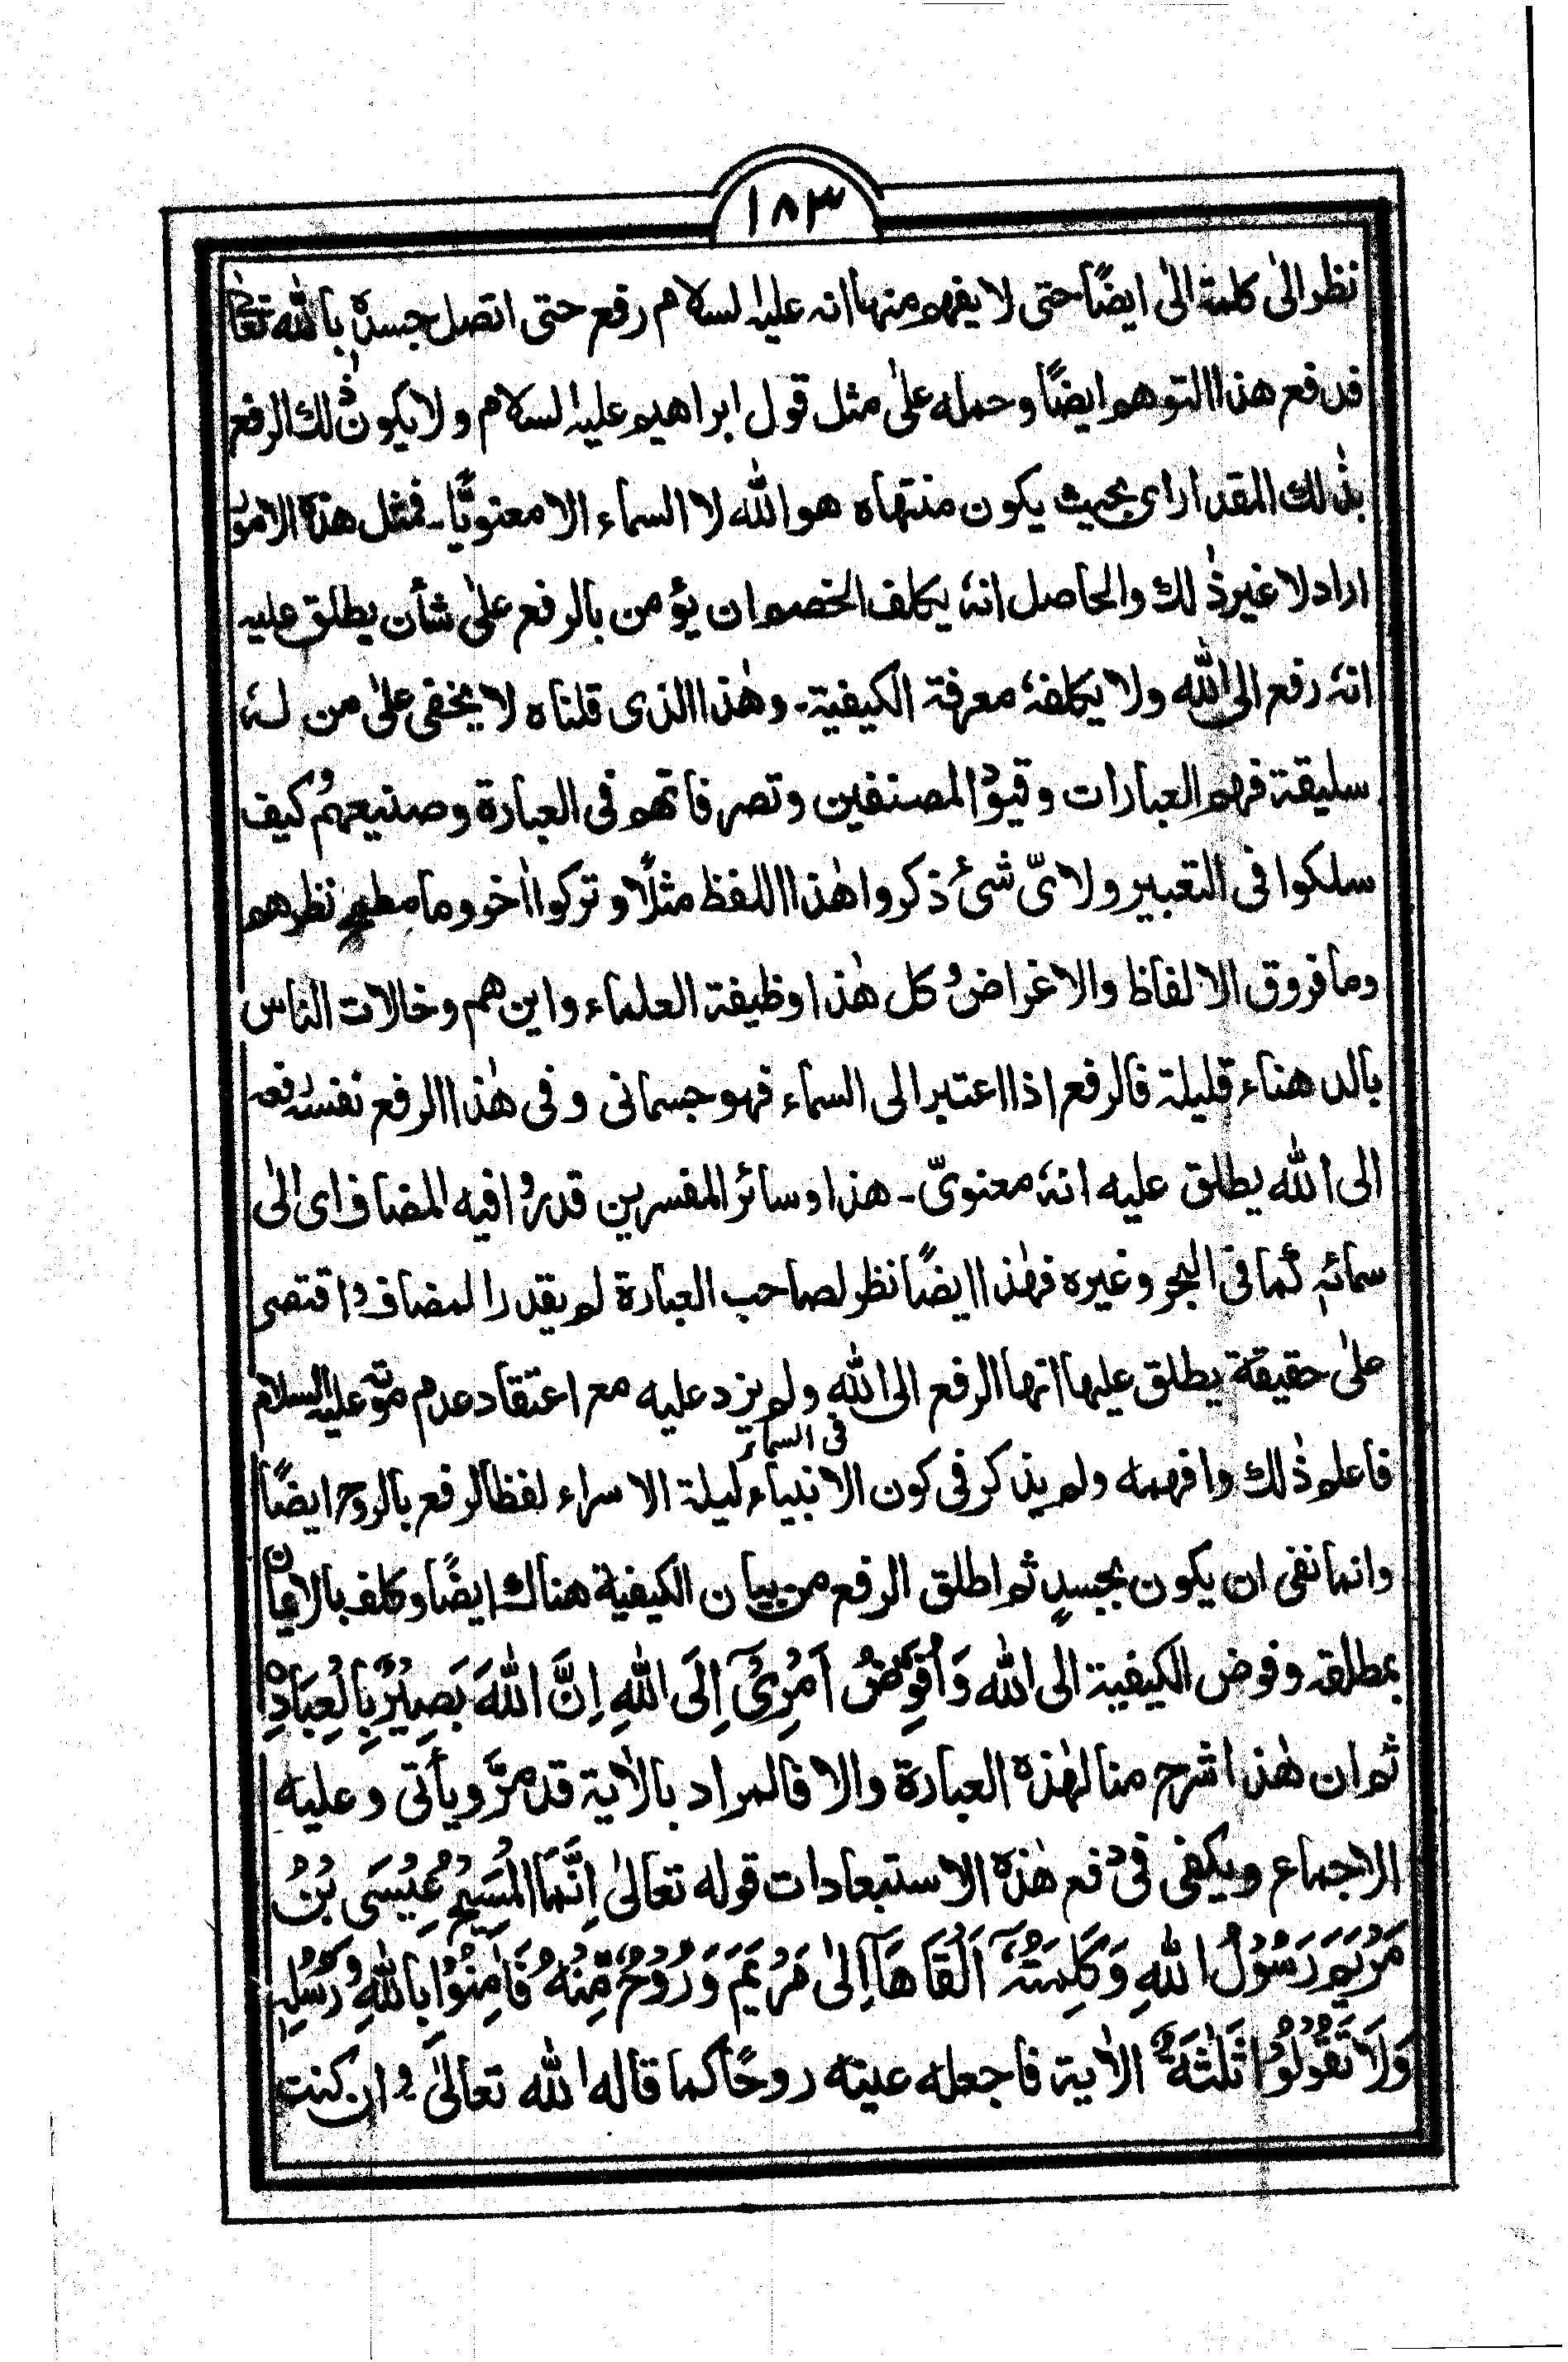 ١٨٣
نظر الىٰ كلمة الىٰ ايضًا حتى لا يفهم منها انه عليه السلام رفع حتى اتصل جسده بالله تعالىٰ
فدفع هذا التوهم ايضًا وحمله علىٰ مثل قول ابراهيم عليه السلام ولا يكون ذٰلك الرفع
بذٰلك المقدار اى بحيث يكون منتهاه هو الله لا السماء الا معنويًّا۔ فمثل هذه الامور
اراد لا غير ذٰلك والحاصل انهٗ يكلف الخصم ان يؤمن بالرفع علىٰ شأن يطلق عليه
انهٗ رفع الى الله ولا يكلفهٗ معرفة الكيفية۔ وهٰذا الذى قلناه لا يخفى علىٰ من لهٗ
سليقة فهم العبارات وقيود المصنفين وتصرفاتهم فى العبارة وصنيعهم كيف
سلكوا فى التعبير ولاىّ شئ ذكروا هٰذا اللفظ مثلًا وتركوا اٰخر وما مطمح نظرهم
وما فروق الالفاظ والاغراض وكل هٰذا وظيفة العلماء واين هم وخالات الناس
بالدهناء قليلة فالرفع اذا اعتبر الى السماء فهو جسمانى وفى هٰذا الرفع نفسه رفعه
الى الله يطلق عليه انهٗ معنوىّ۔ هذا وسائر المفسرين قدروا فيه المضاف اى الىٰ
سمائهٖ كما فى البحر وغيره فهٰذا ايضًا نظر لصاحب العبارة لم يقدر المضاف واقتصر
علىٰ حقيقة يطلق عليها انها الرفع الى الله ولم يزد عليه مع اعتقاد عدم موته عليه السلام
فاعلم ذٰلك وافهمه ولم يذكر فى كون الانبياء فى السماء ليلة الاسراء لفظ الرفع بالروح ايضًا
وانما نفى ان يكون بجسدٍ ثم اطلق الرفع من بيان الكيفية هناك ايضًا وكلف بالايمان
بمطلقه وفوض الكيفية الى الله وَاُفَوِّضُ اَمْرِىْٓ اِلَى اللهِ اِنَّ اللهَ بَصِيْرٌۢ بِالْعِبَادِ ۞
ثم ان هٰذا شرح منا لهٰذه العبارة والا فالمراد بالاٰية قد مرّ ويأتى وعليه
الاجماع ويكفى فى دفع هٰذه الاستبعادات قوله تعالىٰ اِنَّمَا الْمَسِيْحُ عِيْسَى بْنُ
مَرْيَمَ رَسُوْلُ اللهِ وَكَلِمَتُهٗٓ اَلْقَاهَآ اِلىٰ مَرْيَمَ وَرُوْحٌ مِّنْهُ فَاٰمِنُوْا بِاللهِ وَرُسُلِهٖ
وَلَا تَقُوْلُوْا ثَلٰثَةٌ الاٰية فاجعله عينه روحًا كما قاله الله تعالىٰ وان كنت